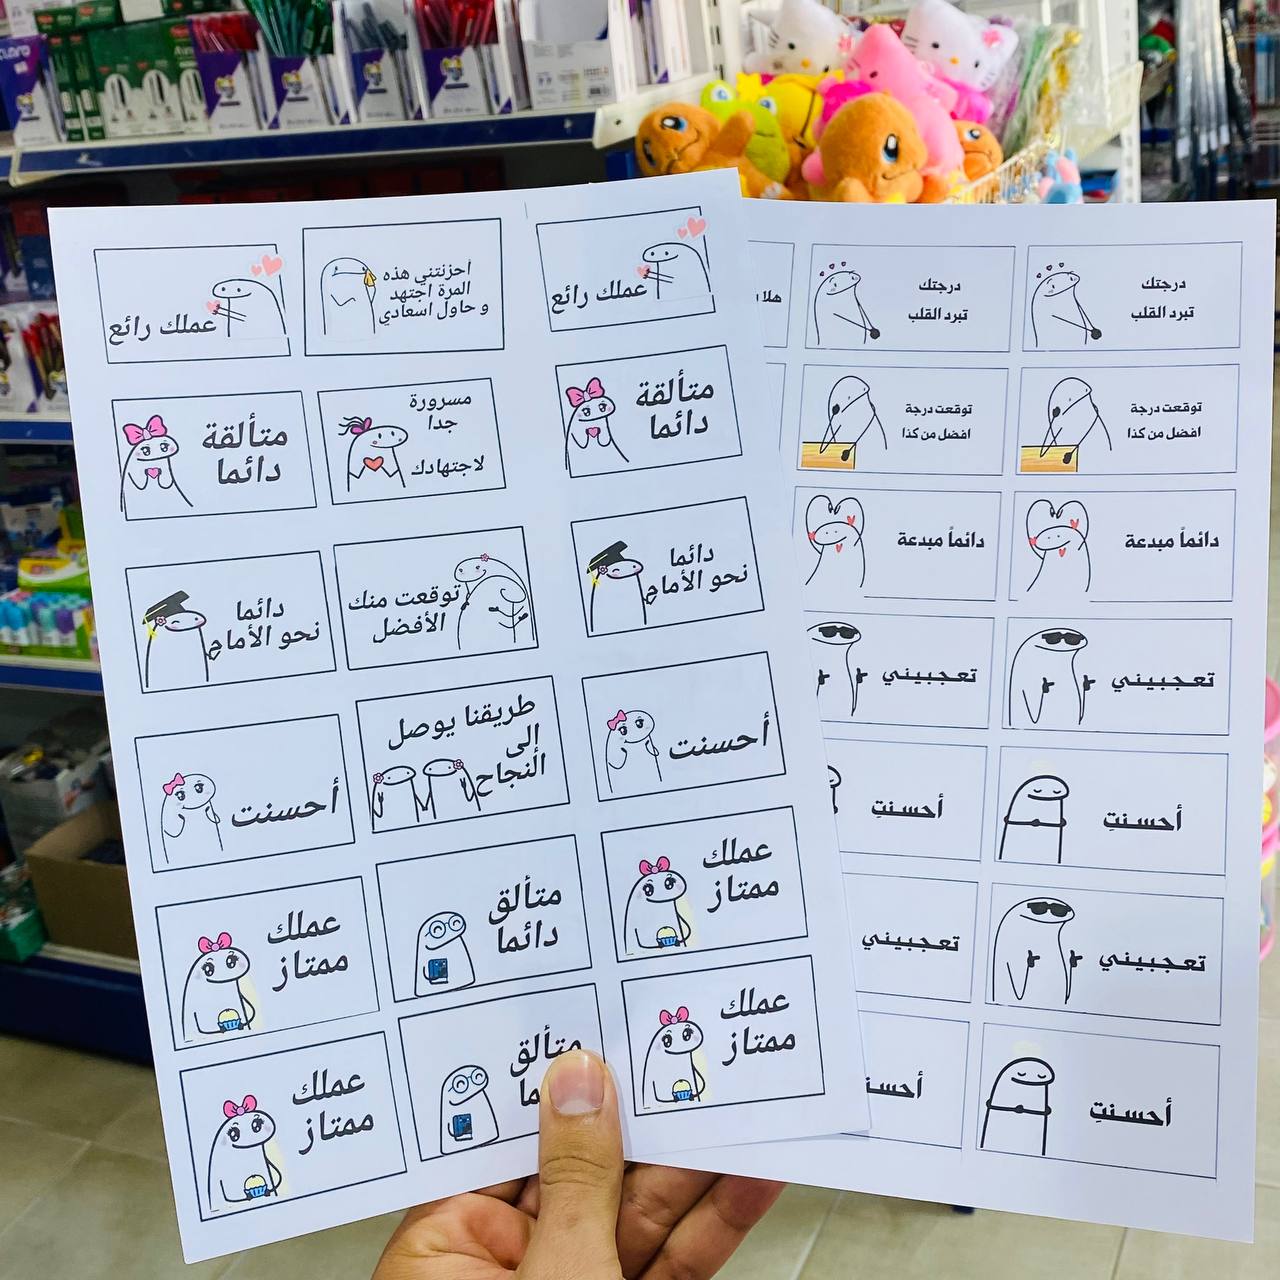 عملك رائع
أحزنتني هذه
المرة اجتهد
و حاول اسعادي
عملك رائع
متألقة
دائما
مسرورة
جدا
لاجتهادك
متألقة
دائما
دائما
نحو الأمام
توقعت منك
الأفضل
دائما
نحو الأمام
أحسنت
طريقنا يوصل
إلى
النجاح
أحسنت
عملك
ممتاز
متألق
دائما
عملك
ممتاز
عملك
ممتاز
متألق
عملك
ممتاز
درجتك
تبرد القلب
درجتك
تبرد القلب
توقعت درجة
افضل من كذا
توقعت درجة
افضل من كذا
دائماً مبدعة
دائماً مبدعة
تعجبيني
تعجبيني
أحسنتِ
أحسنتِ
تعجبيني
تعجبيني
أحسنتِ